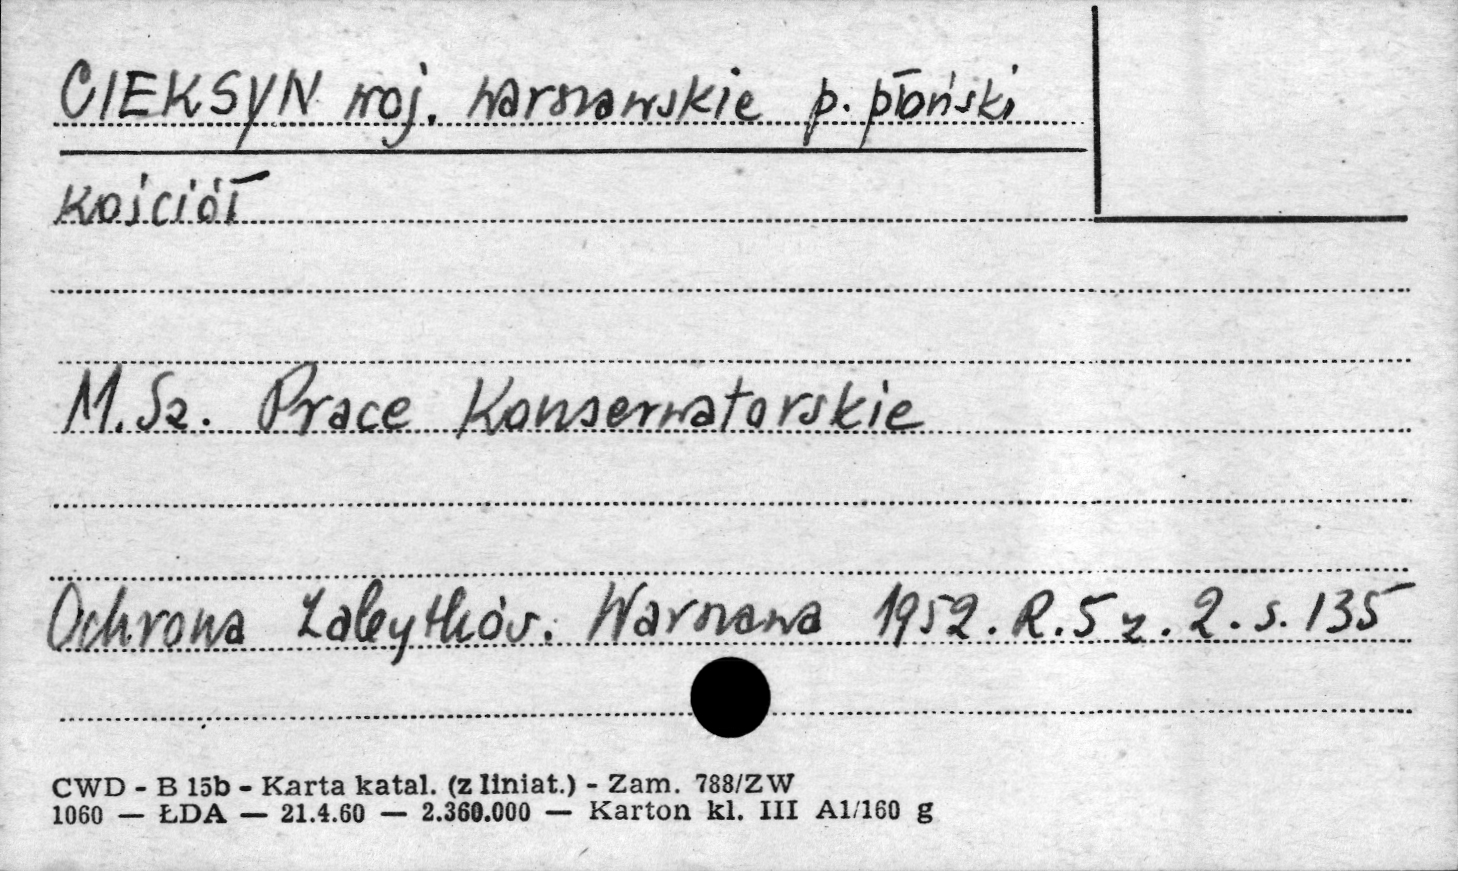 CIEKSYN woj. warszawskie p. płoński
Kościół
M.Sz. Prace Konserwatorskie
Ochrona Zabytków. Warszawa 1952. R.5 z. 2. s. 135
CWD - B 15b - Karta katal. (z liniat.) - Zam. 788/ZW
1060 — ŁDA — 21.4.60 — 2.360.000 — Karton kl. III A1/160 g